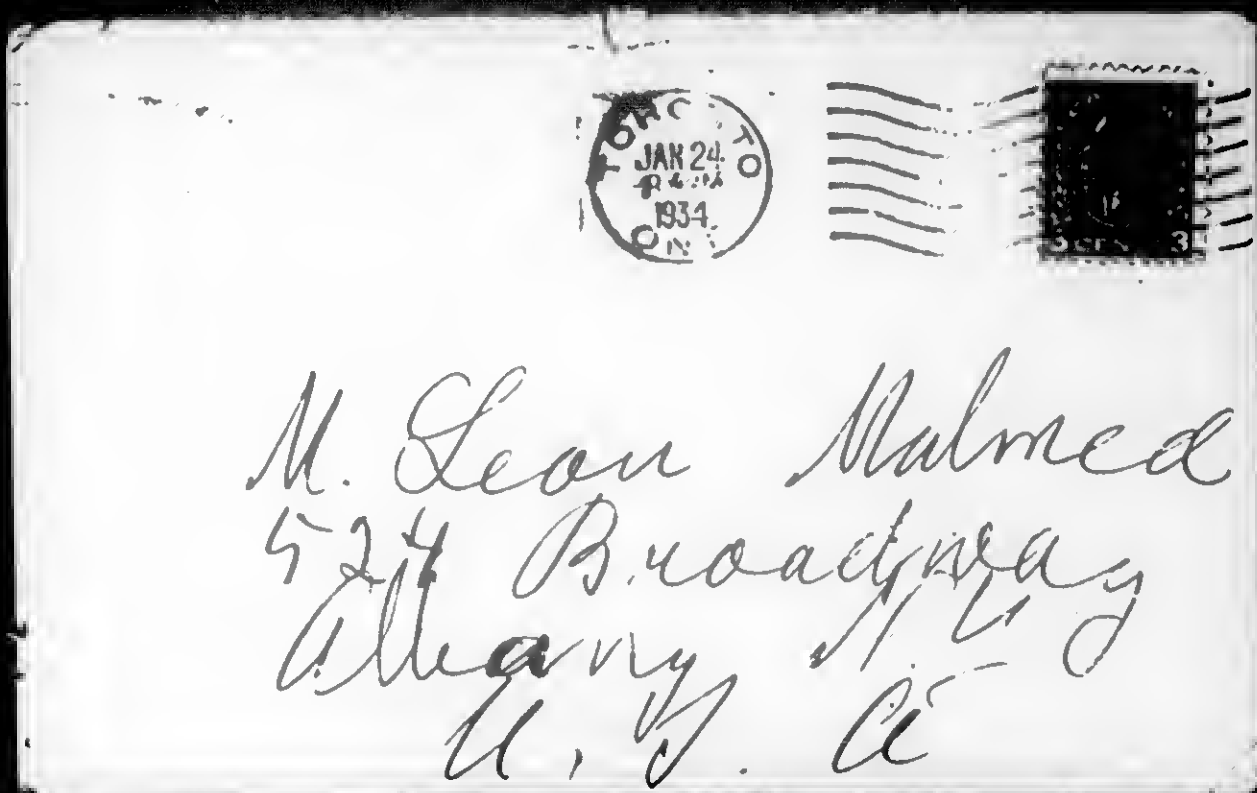 TORONTO
JAN 24
1934
ONT
3 CENTS 3
M. Leon Malmed
524 Broadway
Albany N.Y
U.S.A